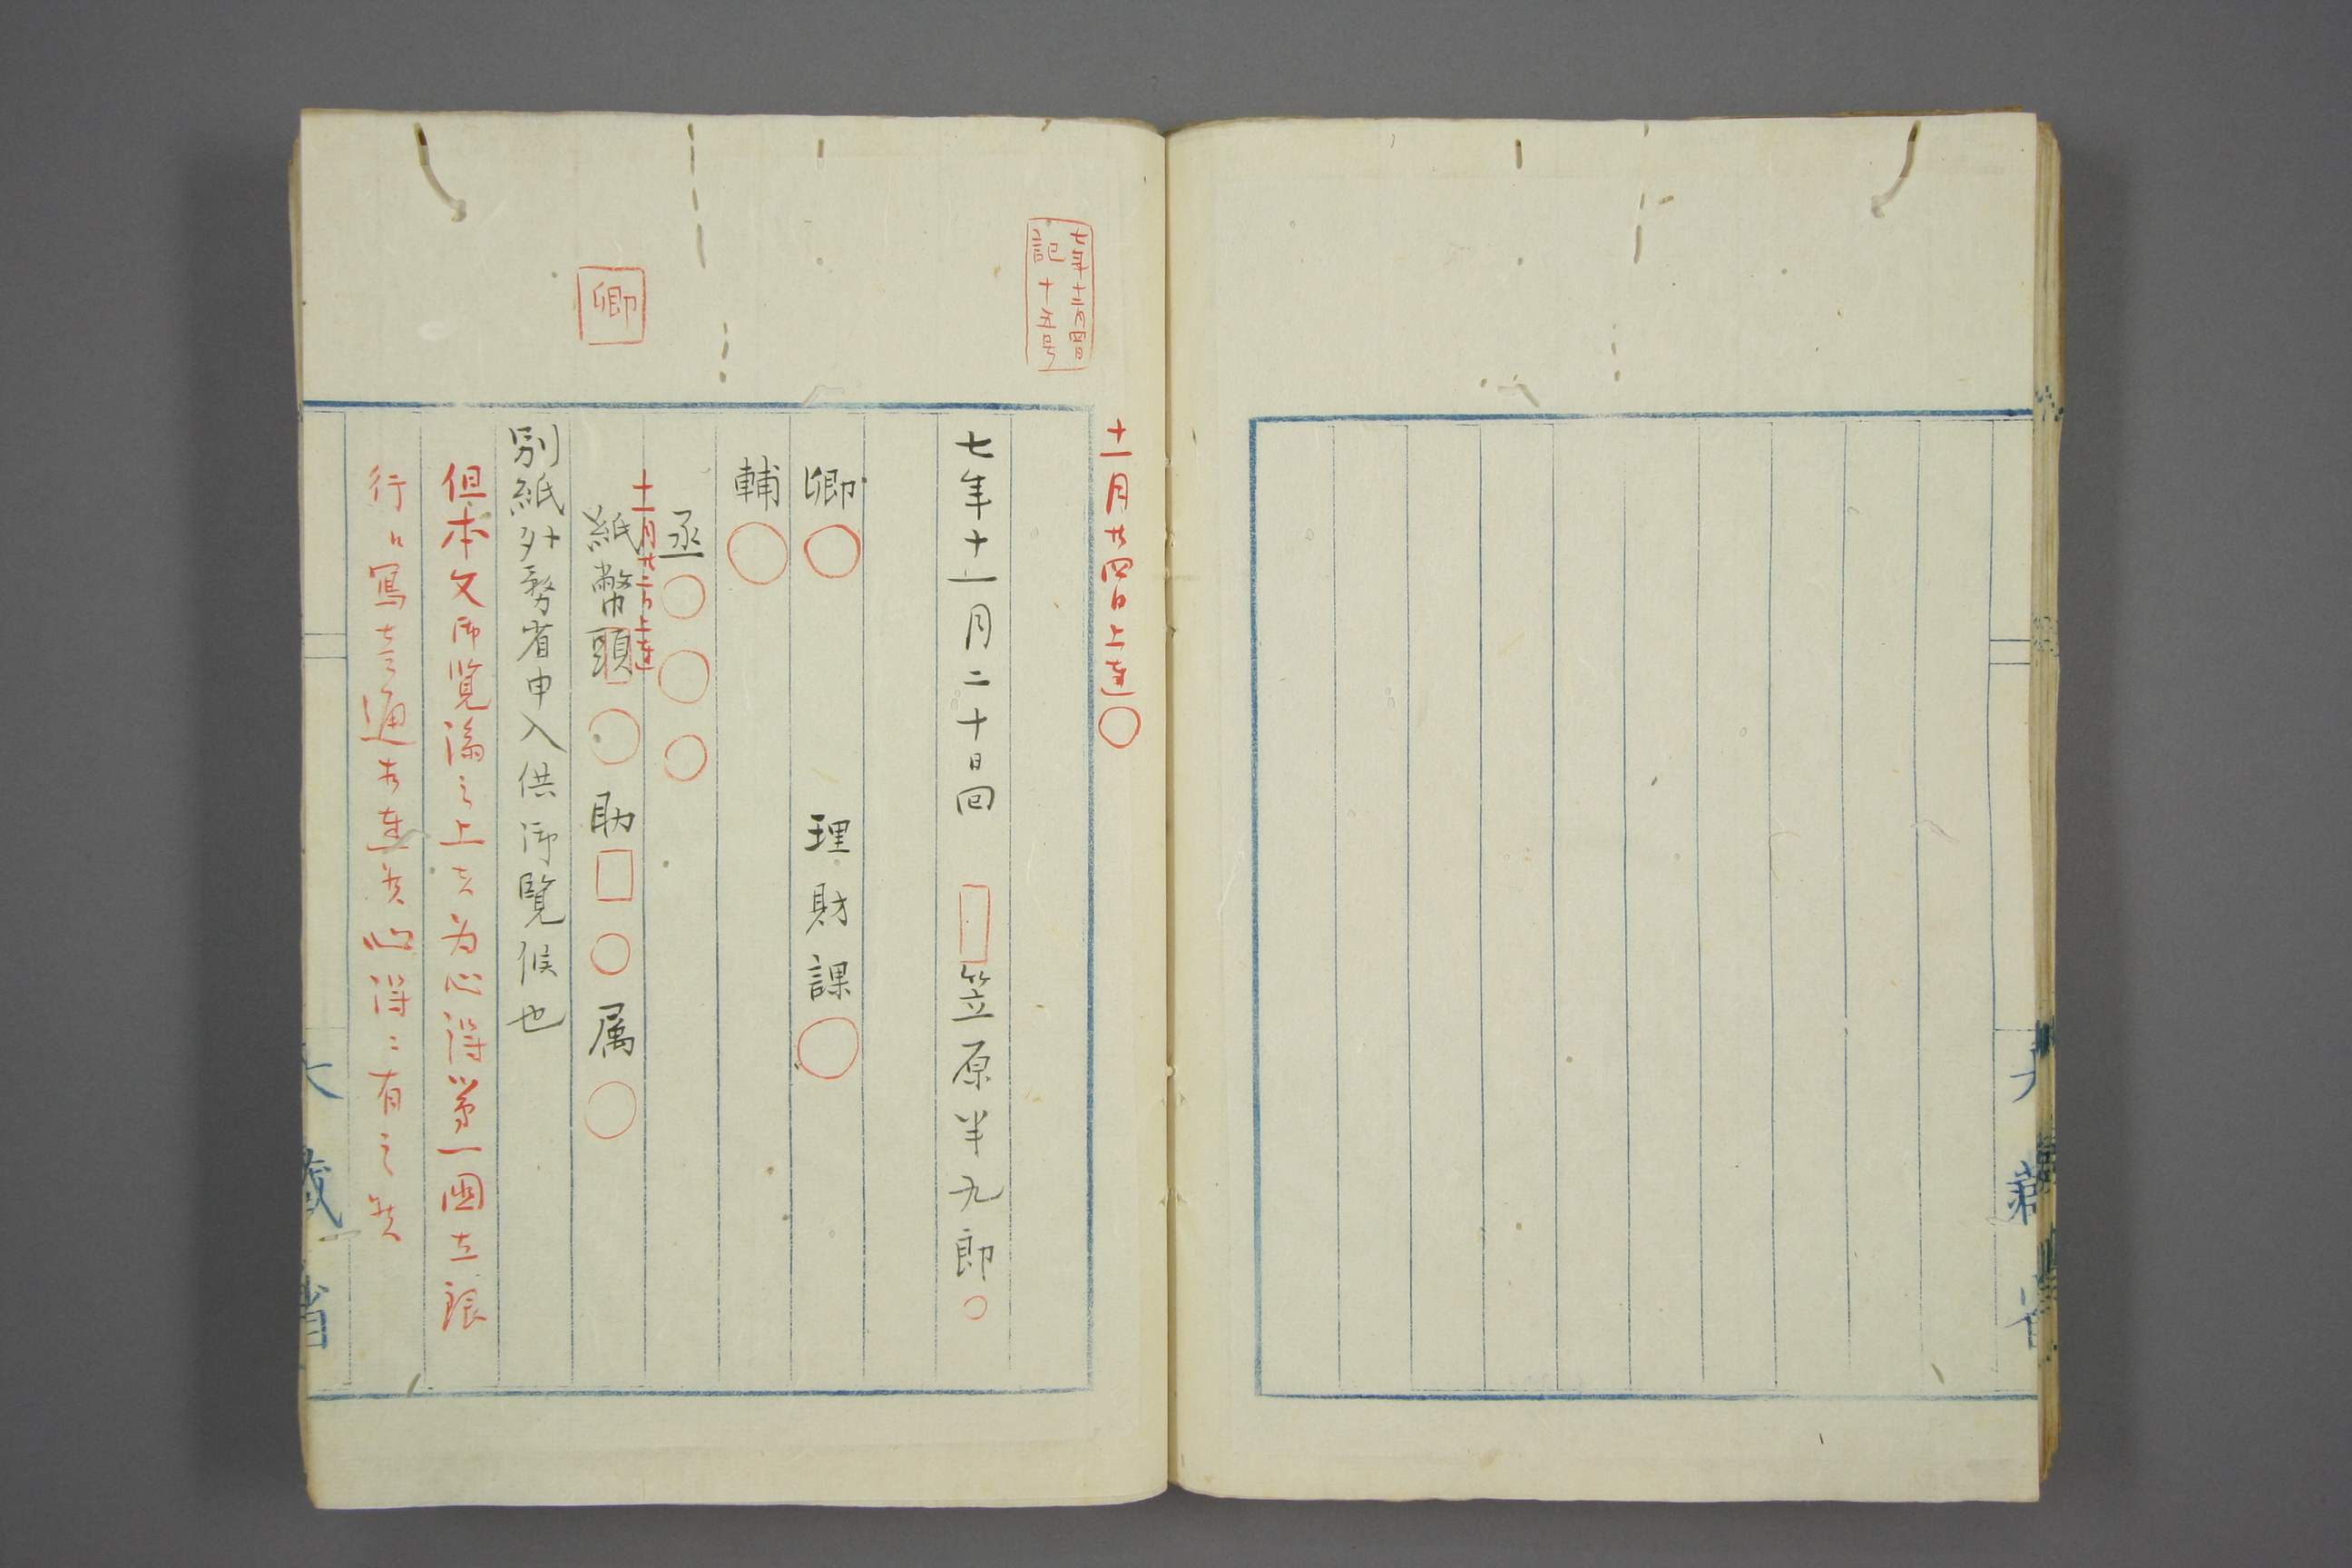 七年十二月四日
記十五号
十一月廿四日上達〇
七年十一月二十日回 笠原半九郎〇
卿〇 理財課〇
輔〇
丞〇〇〇
十一月廿二日上達
紙幣頭〇 助 〇 属〇
卿
別紙外務省申入供御覧候也
但本文御覧済之上者為心得第一国立銀
行ヘ写壱通相達候心得ニ有之候
大蔵省
大蔵省